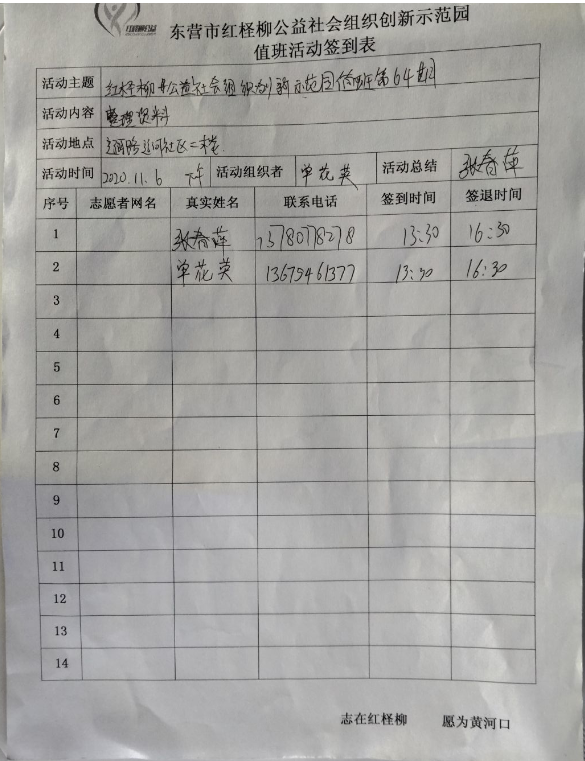 东营市红柽柳公益社会组织创新示范园
值班活动签到表
活动主题 红柽柳公益社会组织创新示范园值班第64期
活动内容 整理资料
活动地点 辽河路运河社区二楼
活动时间 2020.11.6 下午 活动组织者 单花英 活动总结 张春萍
序号 志愿者网名 真实姓名 联系电话 签到时间 签退时间
1 张春萍 13780778278 13:30 16:30
2 单花英 13675461377 13:30 16:30
3
4
5
6
7
8
9
10
11
12
13
14
志在红柽柳 愿为黄河口